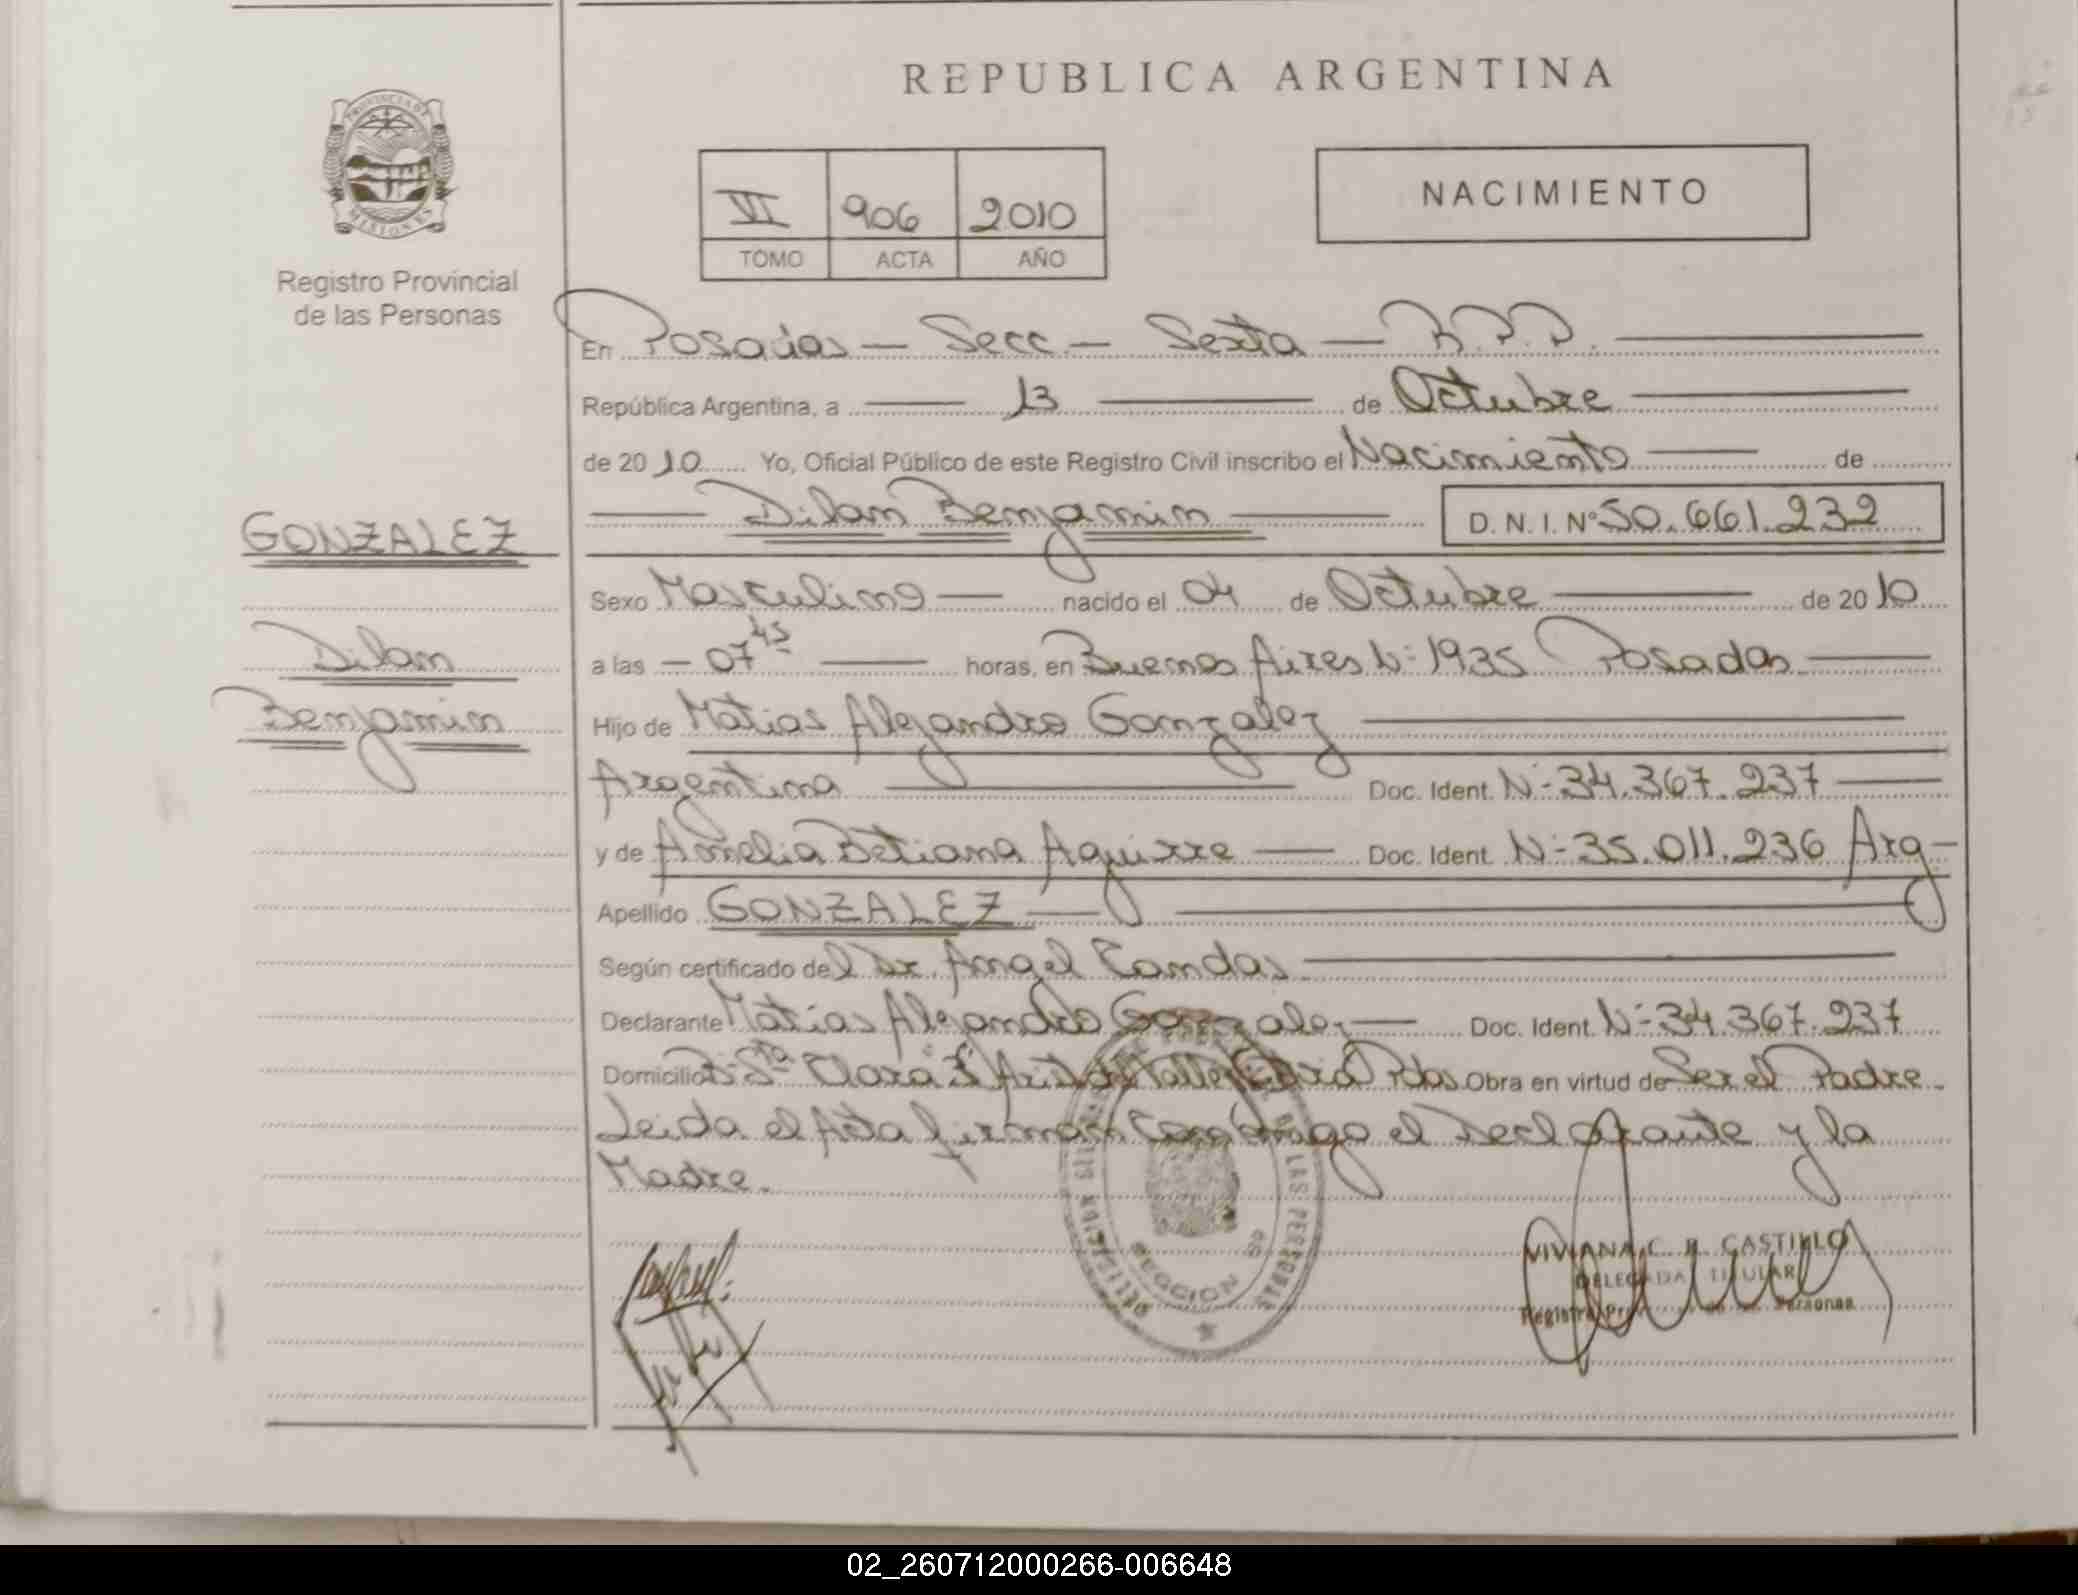 REPUBLICA ARGENTINA
PROVINCIA DE
MISIONES
Registro Provincial
de las Personas
VI 906 2010
TOMO ACTA AÑO
NACIMIENTO
En Posadas - Secc - Sexta - R.P.P.
República Argentina, a 13 de Octubre
de 2010 Yo, Oficial Público de este Registro Civil inscribo el Nacimiento de
Dilan Benjamin D. N. I. Nº 50.661.232
GONZALEZ
Dilan
Benjamin
Sexo Masculino nacido el 04 de Octubre de 2010
a las - 07 45 horas, en Buenos Aires Nº 1935 Posadas
Hijo de Matias Alejandro Gonzalez
Argentina Doc. Ident. Nº 34.367.237
y de Amelia Betiana Aguirre Doc. Ident. Nº 35.011.236 Arg-
Apellido GONZALEZ
Según certificado del Dr. Angel Candas
Declarante Matias Alejandro Gonzalez Doc. Ident. Nº 34.367.237
Domicilio Sta Clara Pdas Obra en virtud de Ser el Padre-
Leida el Acta firman Conmigo el Declarante y la
Madre.
DE LAS PERSONAS
SECCION
VIVIANA C. R. CASTILLO
DELEGADA TITULAR
Registro de las Personas
02_260712000266-006648